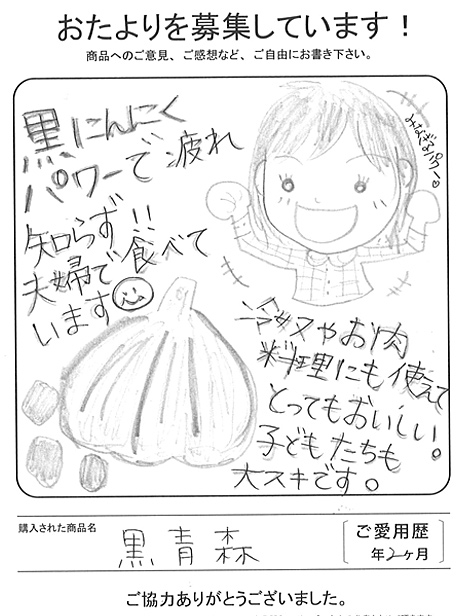 おたよりを募集しています！
商品へのご意見、ご感想など、ご自由にお書き下さい。
黒にんにく
パワーで疲れ
知らず!!
夫婦で食べて
います
みなぎるパワー♡
冷製スやお肉
料理にも使えて
とってもおいしい。
子どもたちも
大スキです。
購入された商品名
黒青森
ご愛用歴
年2ヶ月
ご協力ありがとうございました。